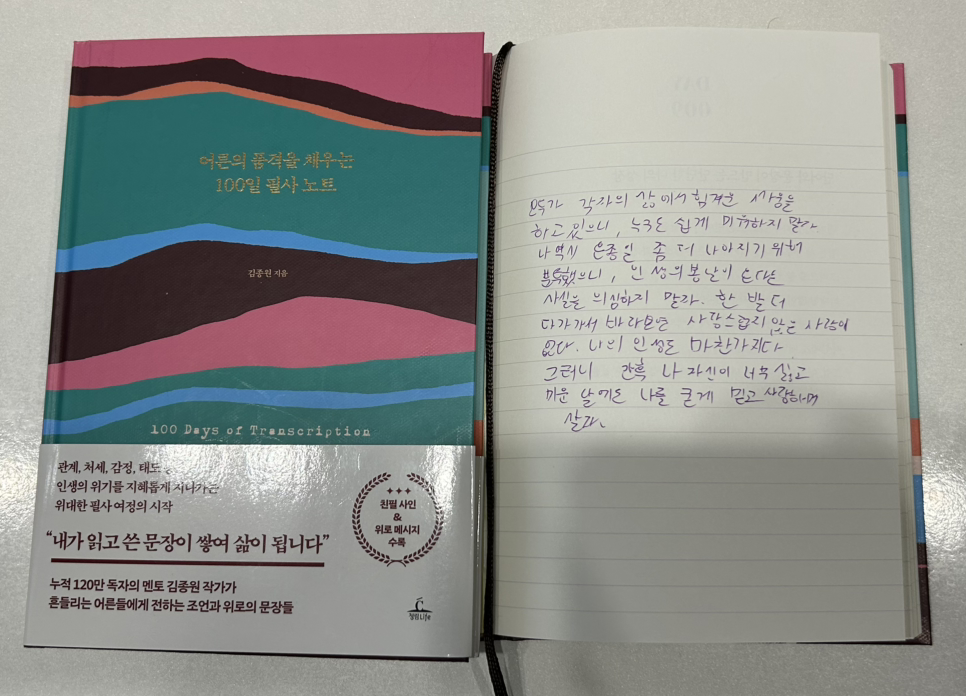 어른의 품격을 채우는
100일 필사 노트
김종원 지음
100 Days of Transcription
관계, 처세, 감정, 태도
인생의 위기를 지혜롭게 지나가는
위대한 필사 여정의 시작
“내가 읽고 쓴 문장이 쌓여 삶이 됩니다”
누적 120만 독자의 멘토 김종원 작가가
흔들리는 어른들에게 전하는 조언과 위로의 문장들
친필 사인
&
위로 메시지
수록
청림Life
모두가 각자의 삶에서 힘겨운 싸움을
하고 있으니, 누구도 쉽게 미워하지 말라
나 역시 온종일 좀 더 나아지기 위해
분투했으니, 인생의 봄날이 온다는
사실을 의심하지 말라. 한 발 더
다가가서 바라보면 사랑스럽지 않은 사람이
없다. 나의 인생도 마찬가지다.
그러니 간혹 나 자신이 너무 싫고
미운 날에도 나를 굳게 믿고 사랑하며
살라.